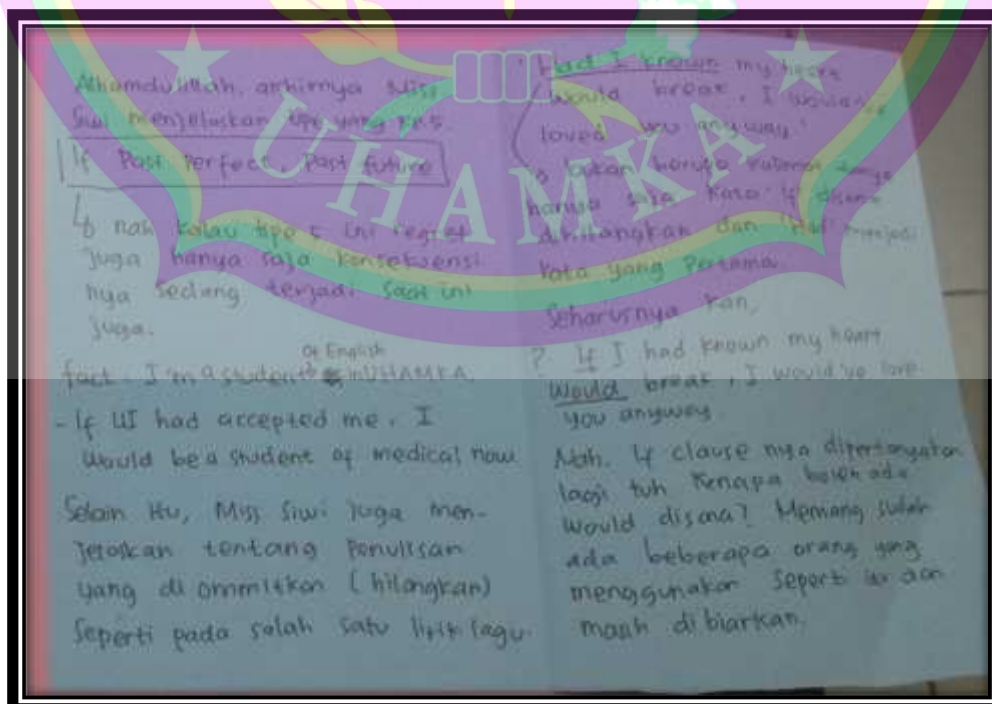 Alhamdulillah, akhirnya Miss
Siwi menjelaskan tipe yang ke5.
If Past Perfect, Past future
nah kalau tipe 5 ini regret
juga hanya saja konsekuensi
nya sedang terjadi saat ini
juga.
Of English
fact: I'm a student in UHAMKA.
- If UI had accepted me, I
would be a student of medical now
Selain itu, Miss Siwi juga men-
jelaskan tentang penulisan
yang di ommitkan (hilangkan)
Seperti pada salah satu lirik lagu.
"Had I known my heart
would break, I would've
loved you anyway"
bukan berupa
hanya saja kata if disana
dihilangkan dan "Had" menjadi
kata yang pertama.
Seharusnya kan,
? If I had known my heart
would break, I would've love
you anyway.
Nah, if clause nya dipertanyakan
lagi tuh kenapa boleh ada
would disana? Memang sudah
ada beberapa orang yang
menggunakan seperti itu dan
masih dibiarkan.
UHAMKA